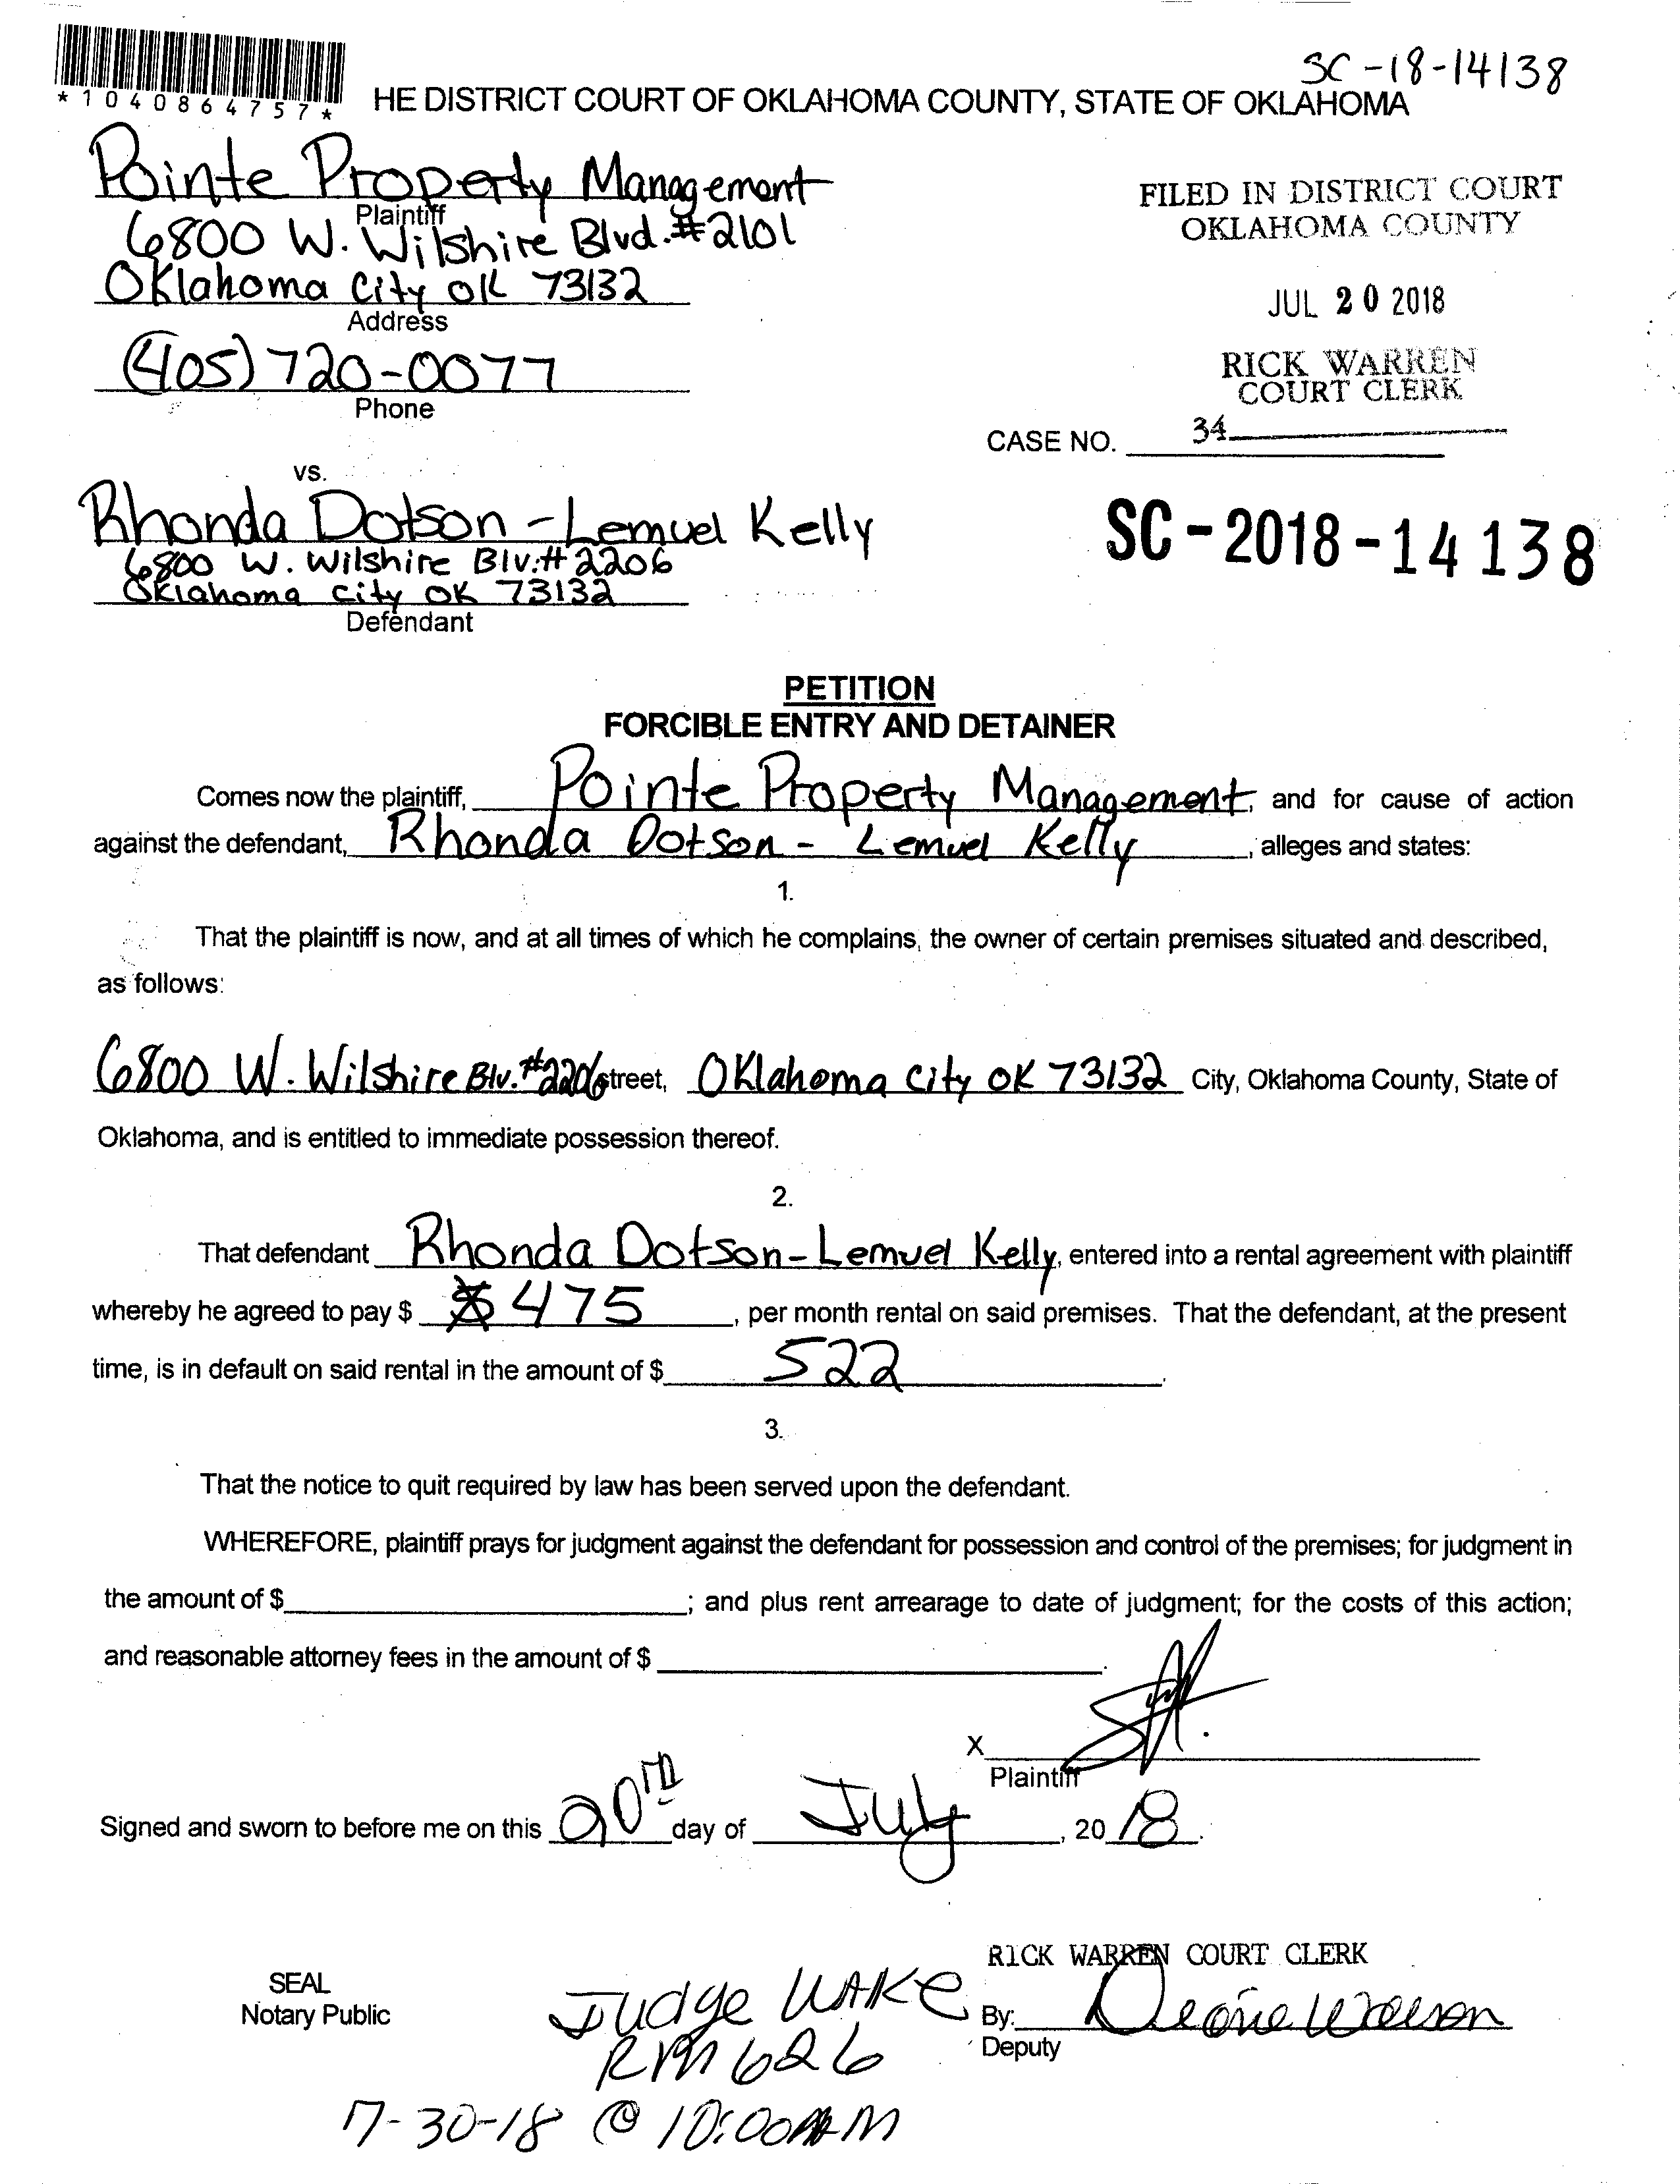 SC-18-14138
*1040864757*
HE DISTRICT COURT OF OKLAHOMA COUNTY, STATE OF OKLAHOMA
Pointe Property Management
Plaintiff
6800 W. Wilshire Blvd. #2101
Oklahoma City OK 73132
Address
(405) 720-0077
Phone
FILED IN DISTRICT COURT
OKLAHOMA COUNTY
JUL 20 2018
RICK WARREN
COURT CLERK
CASE NO. 34
vs.
Rhonda Dotson - Lemuel Kelly
6800 W. Wilshire Blv. # 2206
Oklahoma City OK 73132
Defendant
SC-2018-14138
PETITION
FORCIBLE ENTRY AND DETAINER
Comes now the plaintiff, Pointe Property Management, and for cause of action
against the defendant, Rhonda Dotson - Lemuel Kelly, alleges and states:
1.
That the plaintiff is now, and at all times of which he complains, the owner of certain premises situated and described,
as follows:
6800 W. Wilshire Blv. #2206 street, Oklahoma City OK 73132 City, Oklahoma County, State of
Oklahoma, and is entitled to immediate possession thereof.
2.
That defendant Rhonda Dotson-Lemuel Kelly, entered into a rental agreement with plaintiff
whereby he agreed to pay $ $475, per month rental on said premises. That the defendant, at the present
time, is in default on said rental in the amount of $ 522.
3.
That the notice to quit required by law has been served upon the defendant.
WHEREFORE, plaintiff prays for judgment against the defendant for possession and control of the premises; for judgment in
the amount of $ ; and plus rent arrearage to date of judgment; for the costs of this action;
and reasonable attorney fees in the amount of $ .
X
Plaintiff
Signed and sworn to before me on this 20th day of July, 2018.
RICK WARREN COURT CLERK
SEAL
Notary Public
Judge WAKE
By:
Deputy
RM 626
7-30-18 @ 10:00 AM